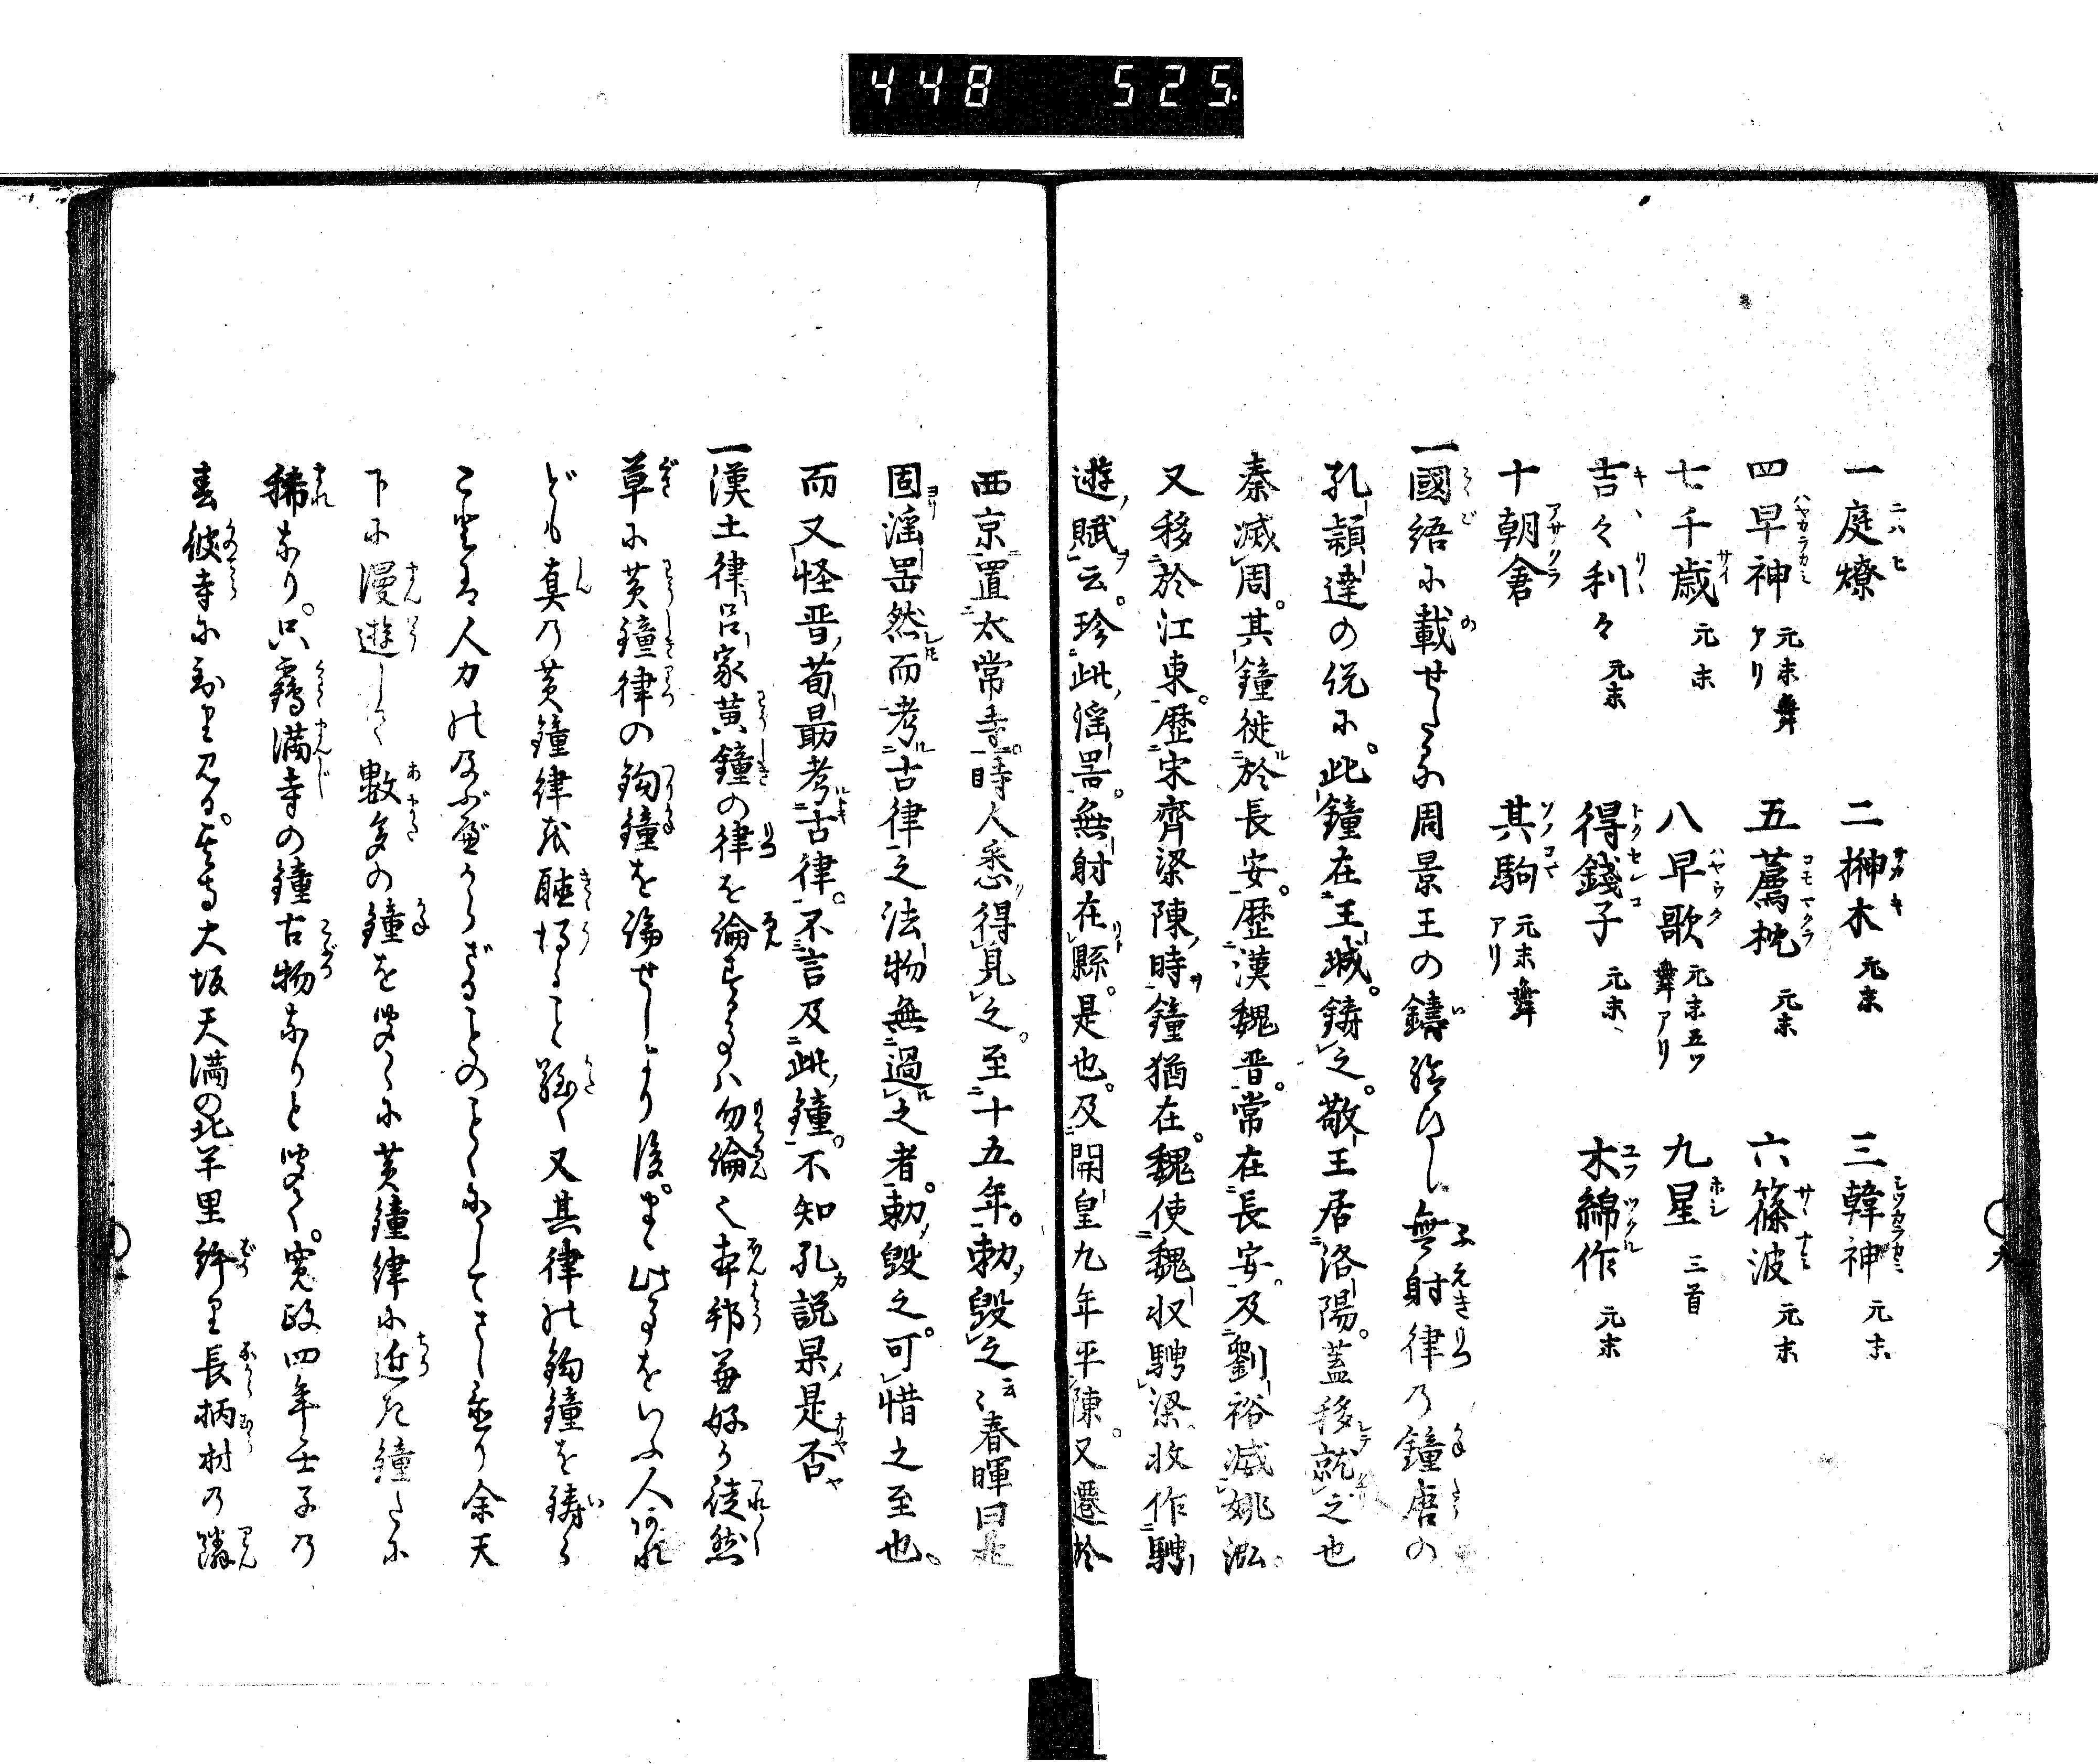 448 525.
一庭燎 二榊木 元末 三韓神 元末
四早神 元末舞アリ 五薦枕 元末 六篠波 元末
七千歳 元末 八早歌 元末五ツ舞アリ 九星 三首
吉々利々 元末 得錢子 元末 木綿作 元末
十朝倉 其駒 元末舞アリ
一國語に載せたる周景王の鑄給ひし無射律の鐘唐の
孔穎達の説に此鐘在王城。鋳之。敬王居洛陽。蓋移就之也
秦滅周。其鐘徙於長安。歴漢魏晋。常在長安。及劉裕滅姚泓。
又移於江東。歴宋齊梁陳時鐘猶在。魏使魏収聘梁。收作聘
遊賦云。珍此淫器。無射在縣。是也。及開皇九年平陳。又遷於
西京置太常寺。時人悉得見之。至十五年。勅毀之云云春暉曰是
固淫器然而考古律之法物無過之者。勅毀之。可惜之至也。
而又怪晋荀勗考古律。不言及此鐘。不知孔説果是否
一漢土律呂家黄鐘の律を論ずる事ハ勿論之本邦兼好が徒然
草に黄鐘律の鈎鐘を論せしより後。此事をいふ人あれ
ども真の黄鐘律を聴得ること難く又其律の鈎鐘を鋳る
こと人力の及ぶべからざることのことくにして余天
下に漫遊して數多の鐘を聞くに黄鐘律に近き鐘に
稀なり。只鶴満寺の鐘古物なりと聞く。寛政四年壬子の
春彼寺に到り見る。其寺大坂天満の北半里許り長柄村の隣